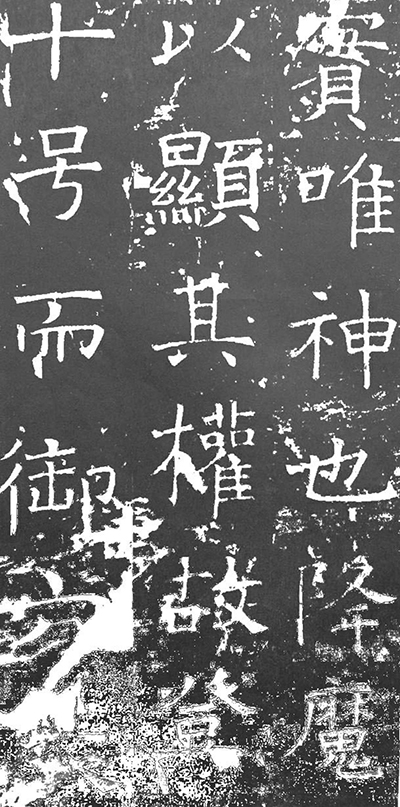 實唯神也降魔
以顯其權故登
十号而御方